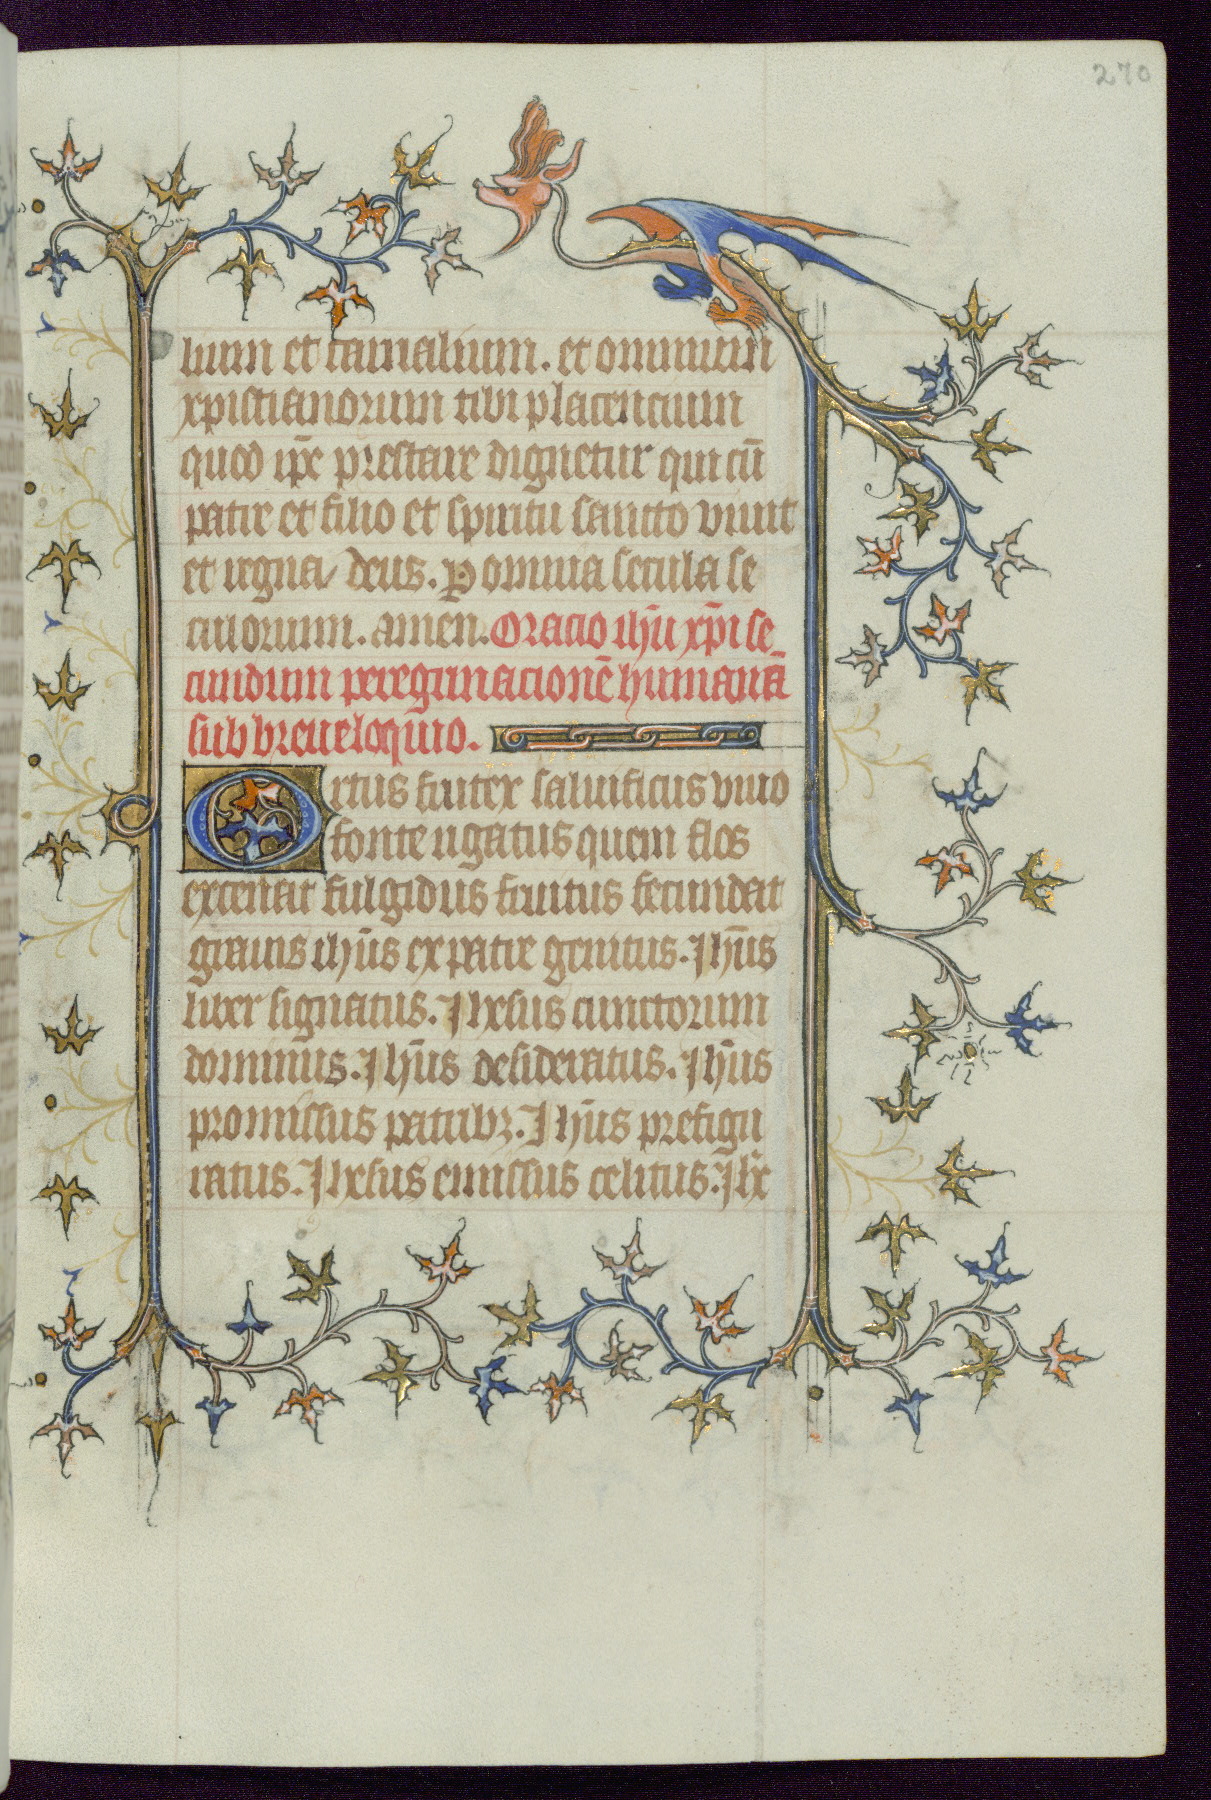 270
lium et carnalium. et omnium
xpistianorum tibi placencium
quod ip̄e prestare dignetur qui cū
patre et filio et spiritu sancto viuit
et regnat deus. P omnia secula se
culorum. amen. Oracio ihū xp̄i se_
cundum peregrinacionē humanā
sub breue loquio.
Ortus frutex saluificus viuo
fonte rigatus quem flos
exornat fulgidus fructus fecundat
grauis ihūs ex patre genitus. Jhūs
liber signatus. Jhesus cunctorum
dominus. Jhūs desideratus. Jhūs
promissus patribꝫ. Jhūs prefigu
ratus. Jhesus emissus celitus. Jhe